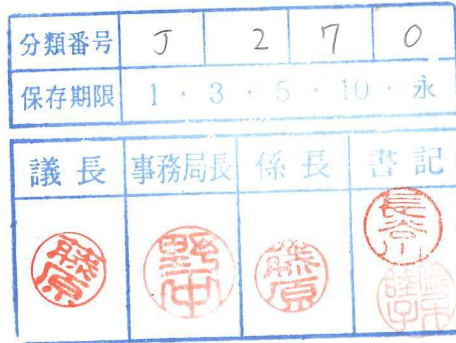 分類番号 J 2 7 0
保存期限 1・3・5・10・永
議長 事務局長 係長 書記
藤原 野中 藤原 長谷川